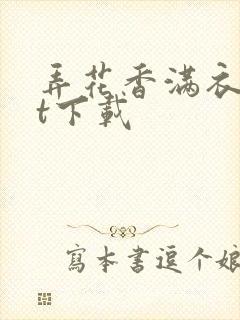 弄花香满衣
t下载
写本书逗个娘